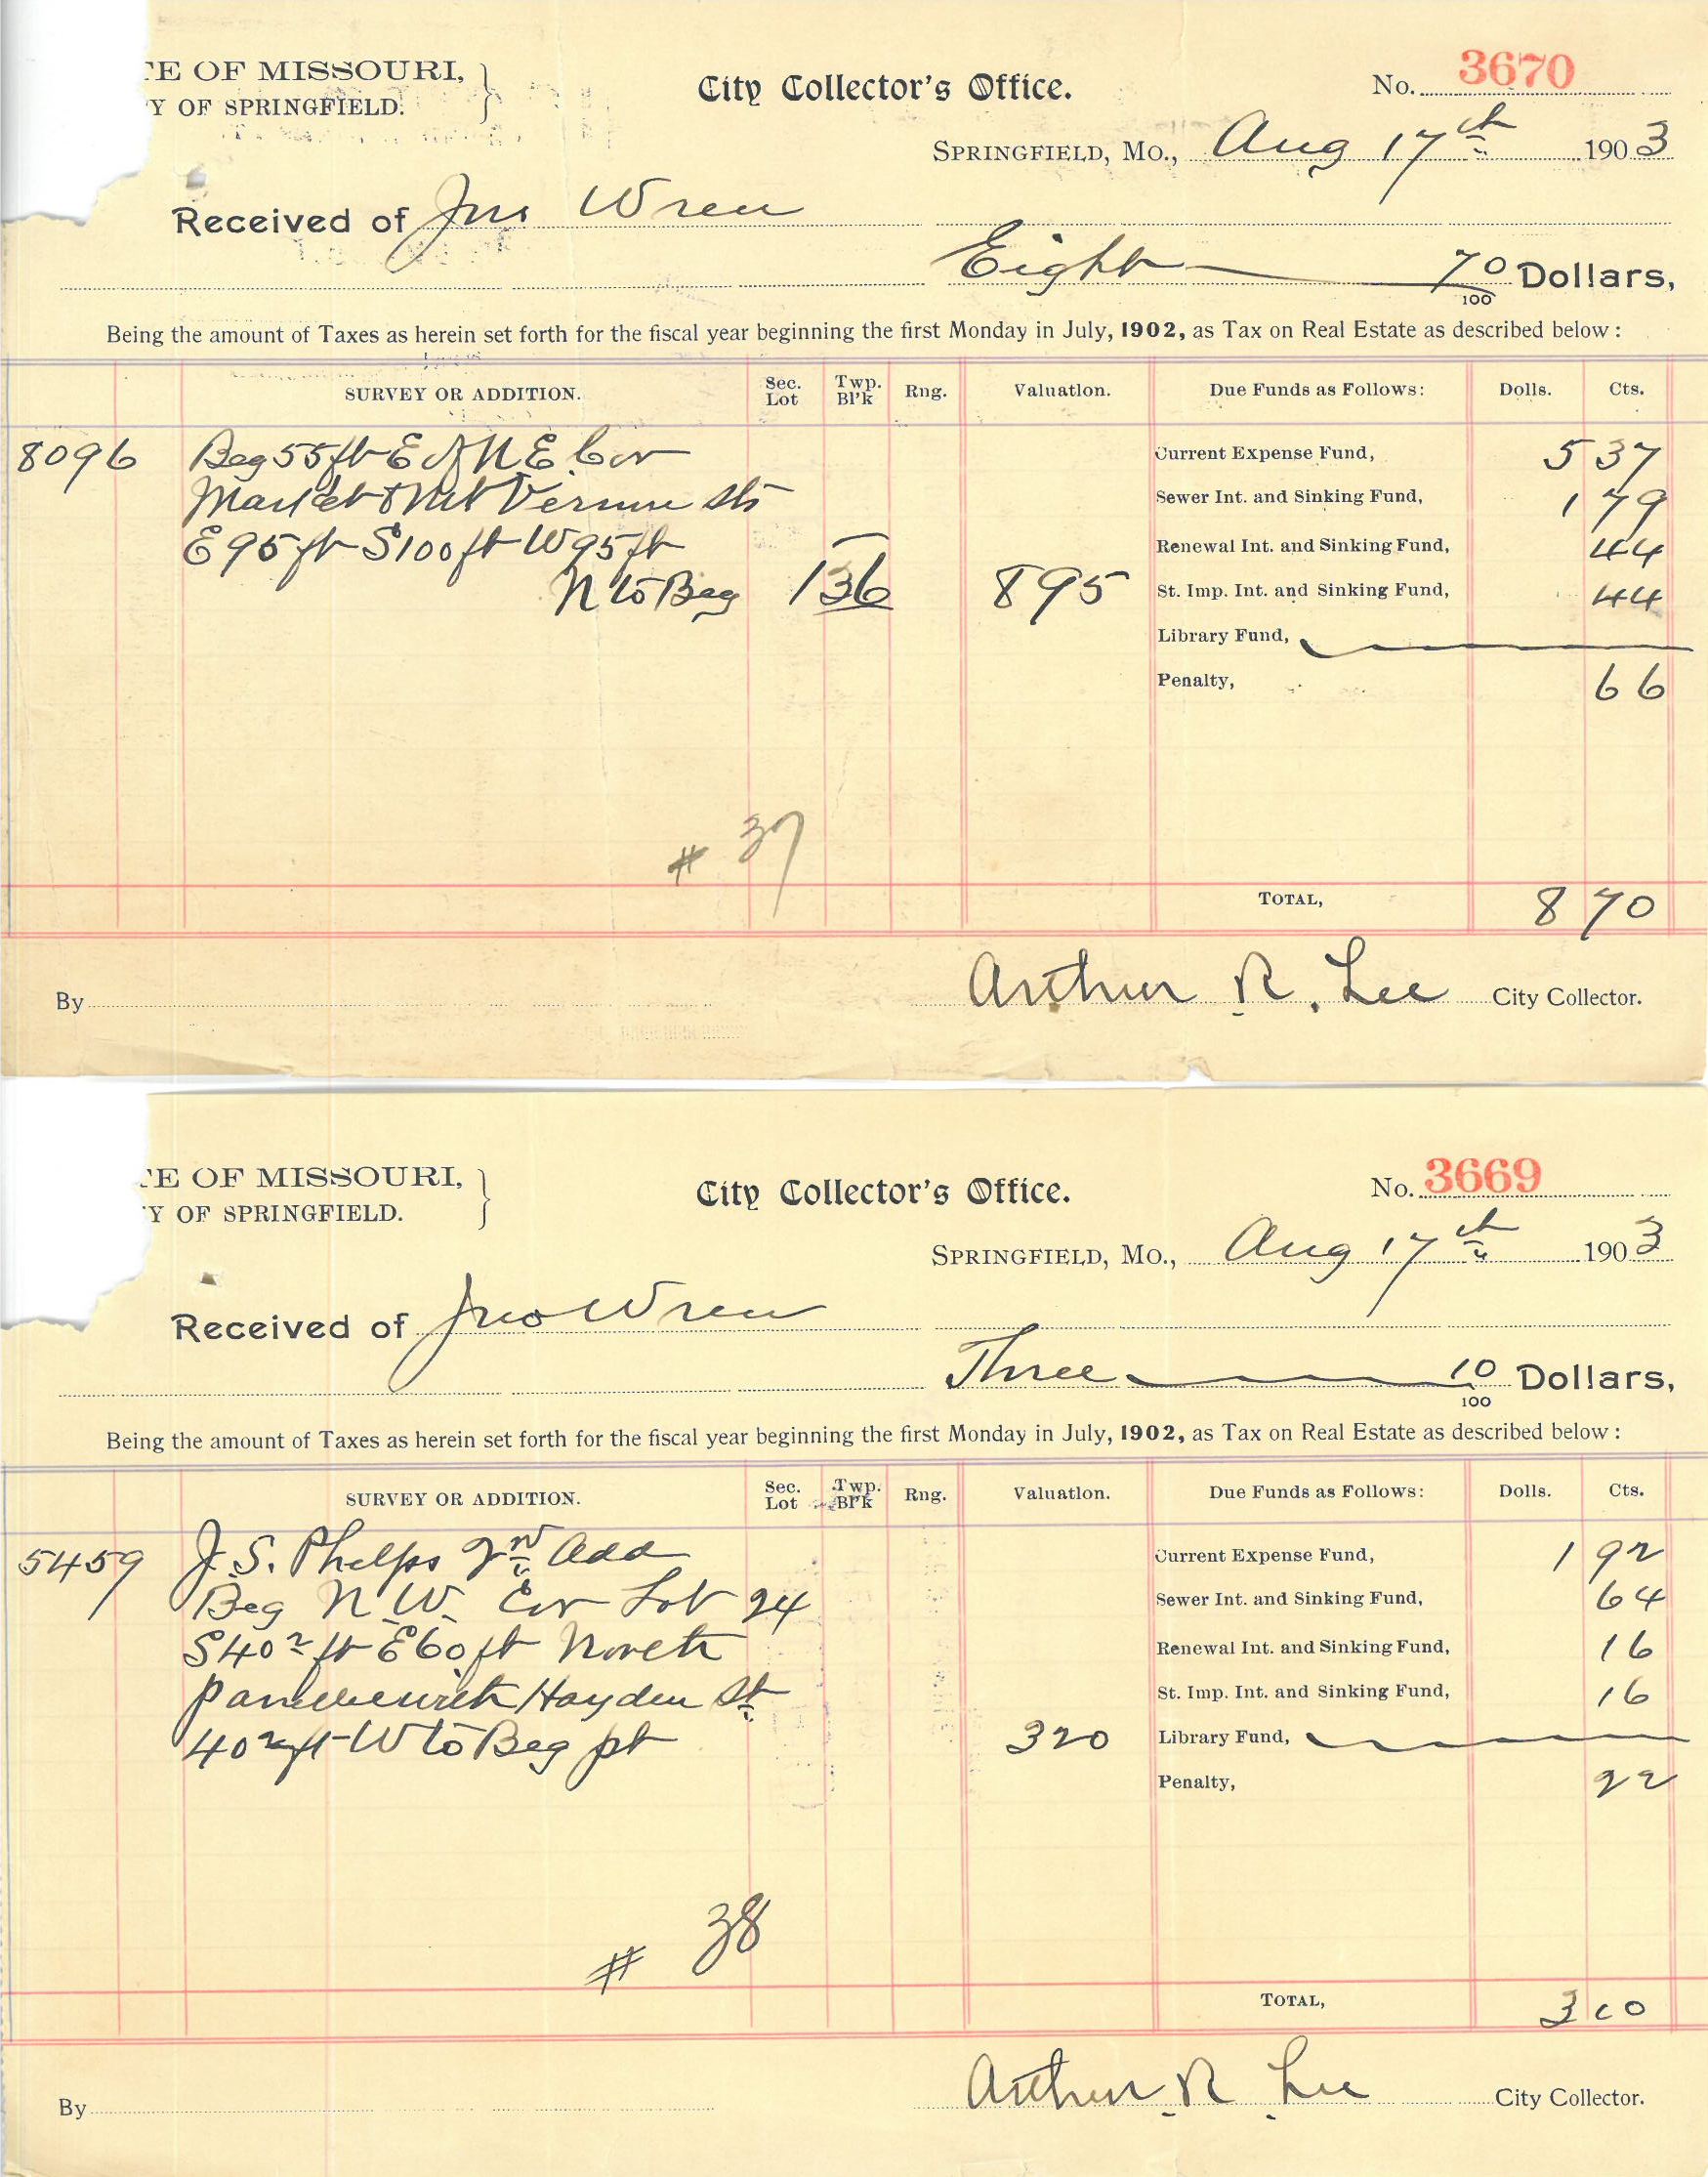 TE OF MISSOURI,
Y OF SPRINGFIELD.
City Collector's Office.
No. 3670
SPRINGFIELD, MO., Aug 17th 1903
Received of Jno Wren
Eight 70/100 Dollars,
Being the amount of Taxes as herein set forth for the fiscal year beginning the first Monday in July, 1902, as Tax on Real Estate as described below:
SURVEY OR ADDITION. Sec. Lot Twp. Bl'k Rng. Valuation. Due Funds as Follows: Dolls. Cts.
8096 Beg 55 ft E of N E Cor Current Expense Fund, 5 37
Market & Mt Vernon Sts Sewer Int. and Sinking Fund, 1 79
E 95 ft S 100 ft W 95 ft Renewal Int. and Sinking Fund, 44
N to Beg 136 895 St. Imp. Int. and Sinking Fund, 44
Library Fund,
Penalty, 66
# 37
TOTAL, 8 70
By Arthur R. Lee City Collector.
TE OF MISSOURI,
Y OF SPRINGFIELD.
City Collector's Office.
No. 3669
SPRINGFIELD, MO., Aug 17th 1903
Received of Jno Wren
Three 10/100 Dollars,
Being the amount of Taxes as herein set forth for the fiscal year beginning the first Monday in July, 1902, as Tax on Real Estate as described below:
SURVEY OR ADDITION. Sec. Lot Twp. Bl'k Rng. Valuation. Due Funds as Follows: Dolls. Cts.
5459 J. S. Phelps 2nd Add Current Expense Fund, 1 92
Beg N. W. Cor Lot 24 Sewer Int. and Sinking Fund, 64
S 40 2 ft E 60 ft North Renewal Int. and Sinking Fund, 16
Hayden St. St. Imp. Int. and Sinking Fund, 16
40 2 ft W to Beg pt 320 Library Fund,
Penalty, 22
# 38
TOTAL, 3 10
By Arthur R. Lee City Collector.